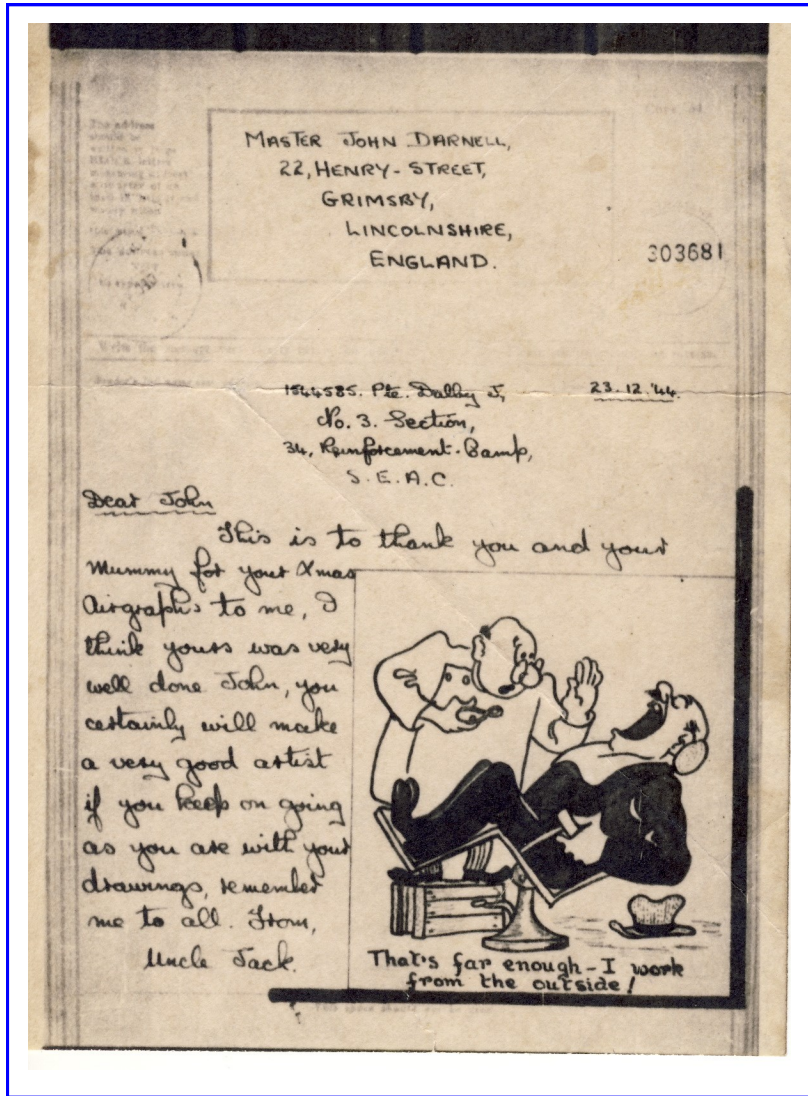 The address
MASTER JOHN DARNELL,
22, HENRY-STREET,
GRIMSBY,
LINCOLNSHIRE,
ENGLAND.
303681
1544585. Pte. Dalby J,
23.12.'44.
No. 3. Section,
34, Reinforcement-Camp,
S.E.A.C.
Dear John
This is to thank you and your
Mummy for your Xmas
Airgraphs to me, I
think yours was very
well done John, you
certainly will make
a very good artist
if you keep on going
as you are with your
drawings, remember
me to all. From,
Uncle Jack.
That's far enough - I work
from the outside!